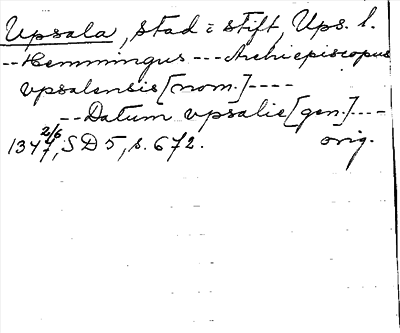 Upsala, stad i stift, Ups. l.
--Hemmingus---Archiepiscopus
vpsalensis [nom.]----
--Datum vpsalie [gen.]----
1347 2/6, SD 5, s. 672. orig.